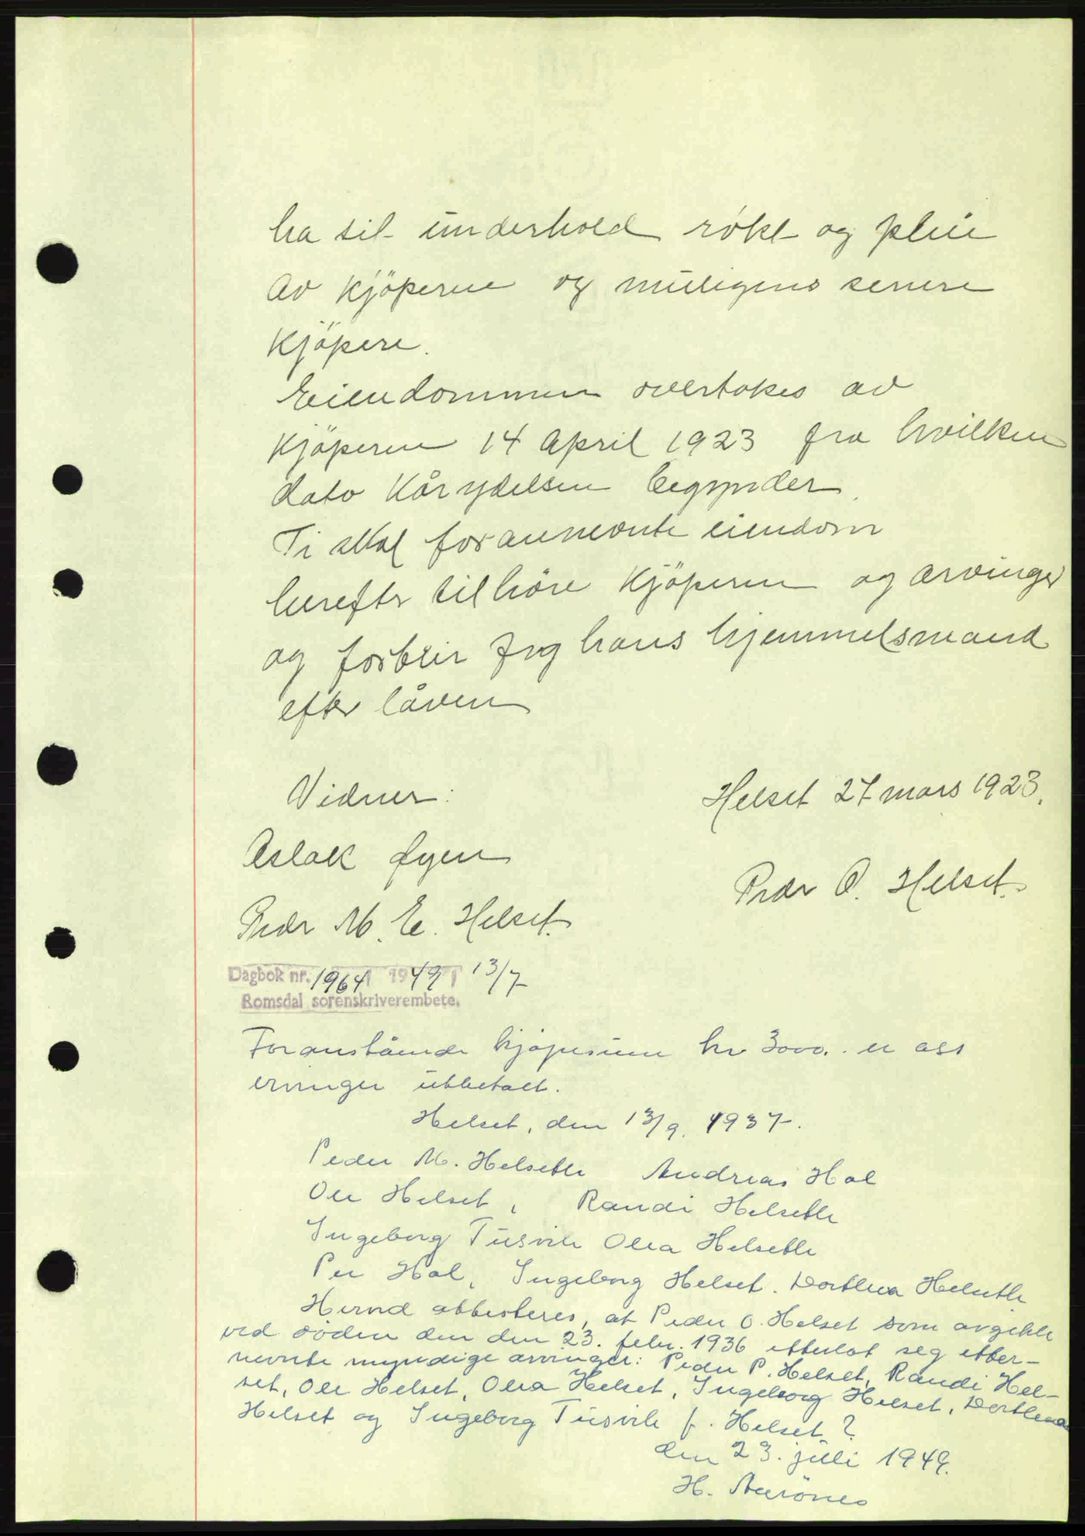 ha til underhold røkt og pleie
av kjöperne og muligens senere
kjöpere.
Eiendommen overtakes av
kjöperen 14 April 1923 fra hvilken
dato Kårydelsen begynder.
Ti skal forannevnte eiendom
herefter tilhöre kjöperen og arvinger
og forblir jeg hans hjemmelsmand
efter låven
Vidner:
Helset 27 mars 1923.
Aslak Øyen
Peder O. Helset.
Peder M. E. Helset.
Dagbok nr. 1964 1949 13/7
Romsdal sorenskriverembete.
Foranstående kjøpesum kr 3000.- er oss
arvinger utbetalt.
Helset, den 13/9. 1937.
Peder M. Helseth Andreas Hol
Ole Helset, Randi Helseth
Ingeborg Tusvik Olea Helseth
Per Hol, Ingeborg Helset. Dorthea Helseth
Herved attesteres, at Peder O. Helset som avgikk
ved døden den den 23. febr. 1936 etterlot seg etter-
nevnte myndige arvinger: Peder P. Helset, Randi Hel-
set, Ole Helset, Olea Helset, Ingeborg Helset, Dorthea
Helset og Ingeborg Tusvik f. Helset?
den 23. juli 1949.
H. Aarönes